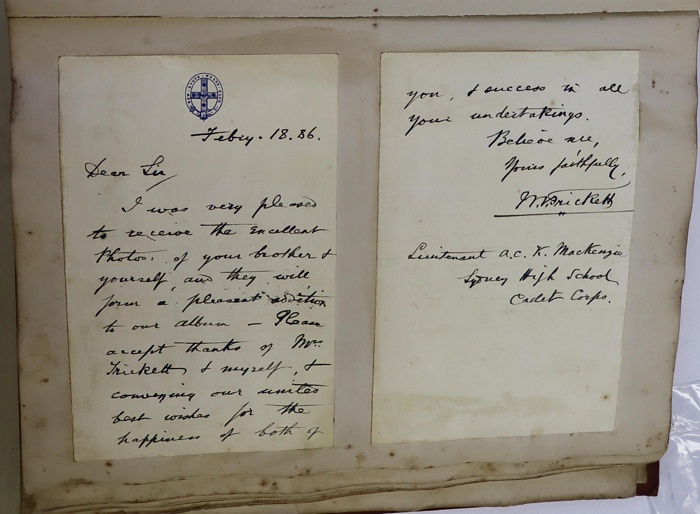 Febry. 18. 86.
Dear Sir
I was very pleased
to receive the Excellent
Photos: of your brother &
yourself, and they will
form a pleasant addition
to our album – Please
accept thanks of Mrs.
Trickett & myself, &
conveying our united
best wishes for the
happiness of both of
you, & success in all
your undertakings.
Believe me,
Yours faithfully,
Trickett
Lieutenant A.C.K. MacKenzie
Sydney High School
Cadet Corps.